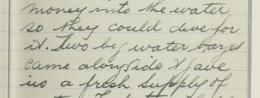 money into the water
so they could dive for
it. Two big water barges
came alongside & gave
us a fresh supply of